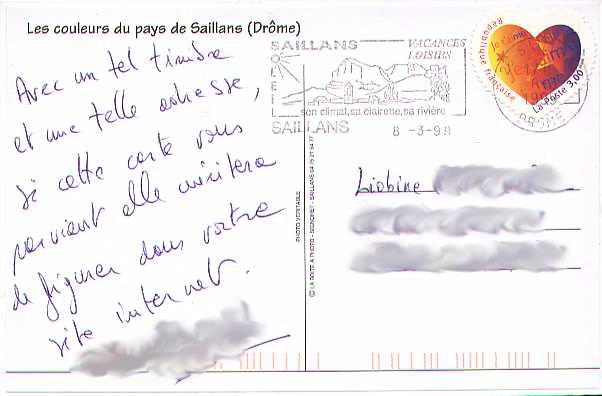 Les couleurs du pays de Saillans (Drôme)
Avec un tel timbre
et une telle adresse,
si cette carte vous
parvient elle méritera
de figurer dans votre
site internet.
SAILLANS
SOLEIL
VACANCES
LOISIRS
son climat, sa clairette, sa rivière
SAILLANS
8 -3-99
République française
La Poste 3,00
DROME
Liobine
PHOTO VERITABLE
© LA BOITE A PHOTO - SIGNORET - SAILLANS